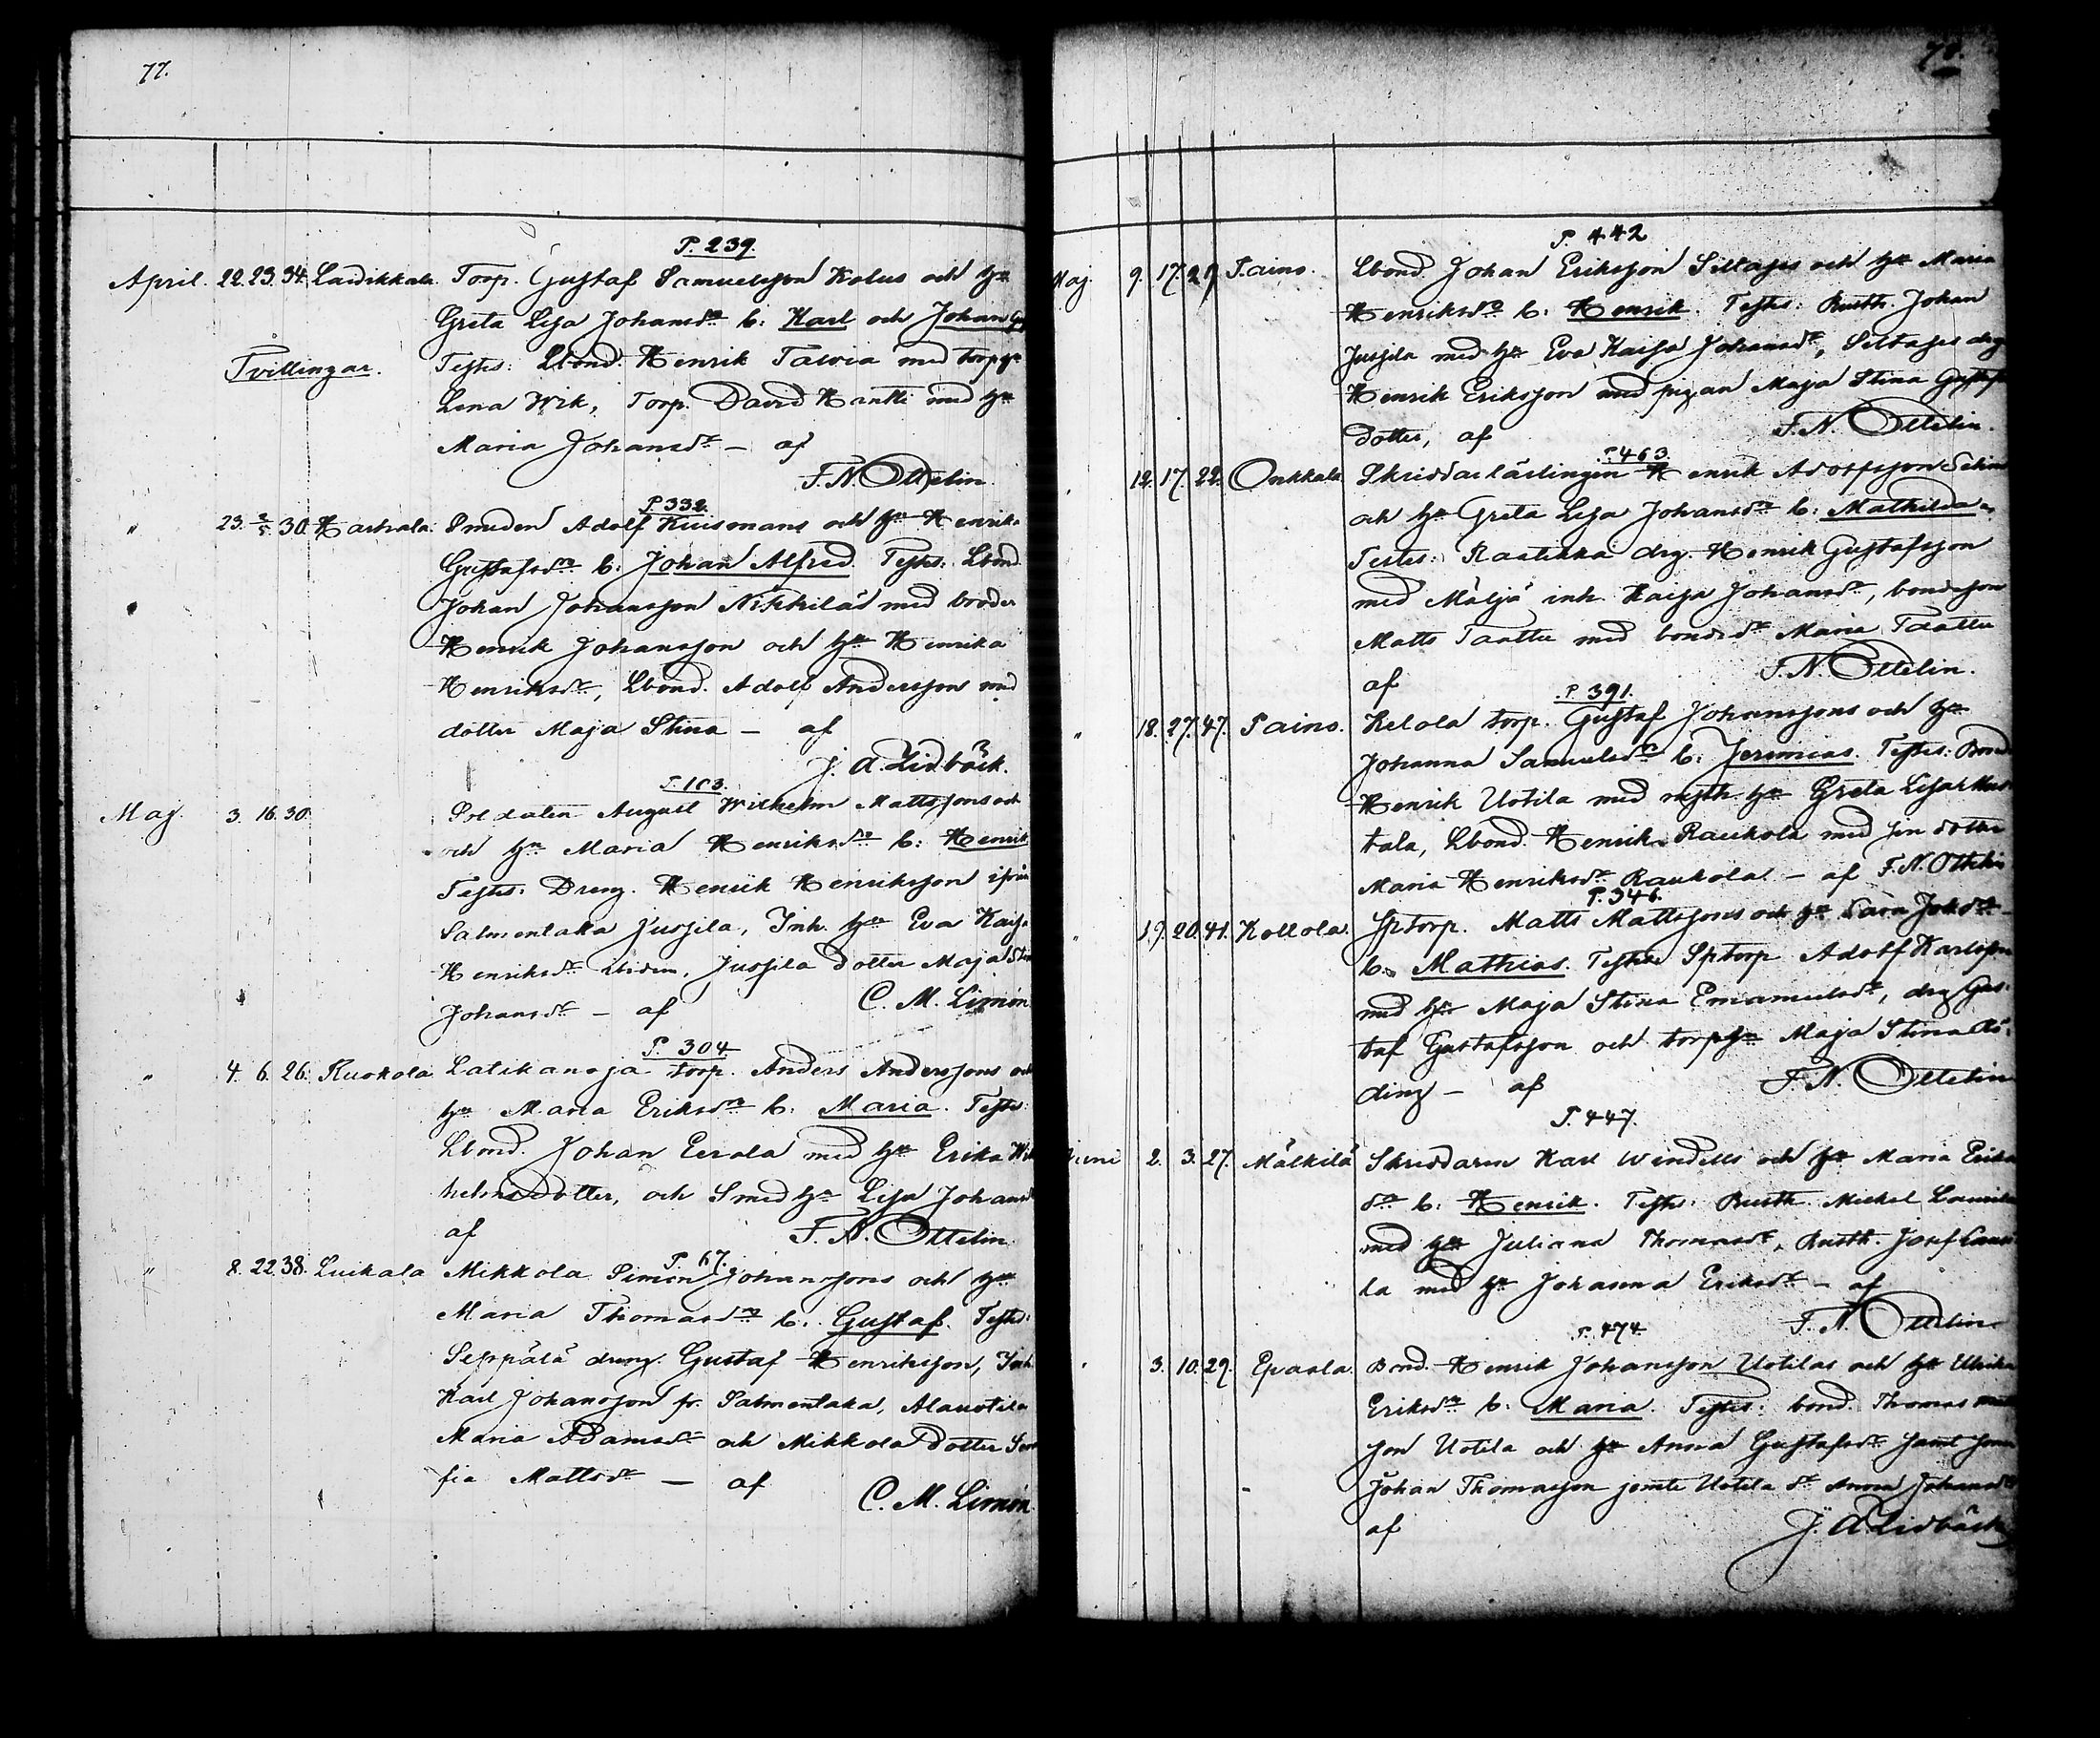 77.
P. 239.
April. 22. 23. 34. Laurikkala. Torp. Gustaf Samuelsson Kolus och hu
Greta Lisa Johansdr b: Karl och Johan
Tvillingar. Testes: Lbond. Henrik Tawia med torphu
Lena Wik, Torp. David Hantti med hu
Maria Johansdr — af
F. N. Ottelin.
P. 332.
" 23. 2/5 30. Haihala. Smeden Adolf Kuismans och hu Henrika
Gustafsdr b: Johan Alfred. Testes: Lbond.
Johan Johansson Nikkiläs med broder
Henrik Johansson och hu Henrika
Henriksdr, Lbond. Adolf Andersson med
dotter Maja Stina — af
J. A. Lidbäck.
P. 103.
Maj. 3. 16. 30. Soldaten August Wilhelm Mattssons och
och hu Maria Henriksdr b: Henrik
Testes: Dreng. Henrik Henriksson ifrån
Salmentaka Jussila, Inh. hu Eva Kaisa
Henriksdr ibidem, Jussila dotter Maja Stin
Johansdr — af C. M. Limón
P. 304.
" 4. 6. 26. Kuokola Latikanoja torp. Anders Anderssons och
hu Maria Eriksdr b: Maria. Testes:
Lbond. Johan Eerola med hu Erika Wil
helmsdotter, och Smedhu Lisa Johansd
af F. N. Ottelin.
P. 67.
" 8. 22. 38. Luikala Mikkola Simon Johanssons och hu
Maria Thomasdr b: Gustaf. Testes:
Seppälä dreng. Gustaf Henriksson, Inh.
Karl Johansson fr. Salmentaka, Alauotila
Maria Adamsdr och Mikkola dotter So
fia Mattsdr — af
C. M. Limón.
78.
P. 442
Maj. 9. 17. 29. Paino. Lbond. Johan Eriksson Siltases och hu Maria
Henriksdr b: Henrik. Testes: Rusth. Johan
Jussila med hu Eva Kaisa Johansdr, Siltases drg
Henrik Eriksson med pigan Maja Stina Gustafs
dotter, af F. N. Ottelin.
P. 463.
" 12. 17. 22. Onkkala Skräddarlärlingen Henrik Adolfsson
och hu Greta Lisa Johansdr b: Mathilda
Testes: Rastikka drg. Henrik Gustafsson
med Mäljä inh. Kaisa Johansdr, bondesson
Matts Taattu med bondedr Maria Taattu
af F. N. Ottelin.
P. 391.
" 18. 27. 47. Paino. Ketola torp. Gustaf Johanssons och hu
Johanna Samuelsdr b: Jeremias. Testes: Bond
Henrik Uotila med rusth. hu Greta Lisa
tala, Lbond. Henrik Raukola med sin dotter
Maria Henriksdr Raukola. — af F. N. Ottelin
P. 346.
" 19. 20. 41. Kollola. Sptorp. Matts Mattssons och hu Sara Johsdr
b: Mathias. Testes Sptorp Adolf Karlsson
med hu Maja Stina Emanuelsdr, drg Gus-
taf Gustafsson och torphu Maja Stina Rö-
ding — af F. N. Ottelin
P. 447.
Juni 2. 3. 27. Mälkilä Skräddaren Karl Windells och hu Maria Eriks
dr b: Henrik. Testes: Rusth. Mickel Laurila
med hu Juliana Thomasdr, Rusth. Josef Lauri
la med hu Johanna Eriksdr — af
F. N. Ottelin
P. 474.
" 3. 10. 29. Epaala. Bond. Henrik Johansson Uotilas och hu Ulrika
Eriksdr b: Maria. Testes: bond. Thomas
son Uotila och hu Anna Gustafsdr samt son
Johan Thomasson jemte Uotila dr Anna Johansdr
af J. A. Lidbäck